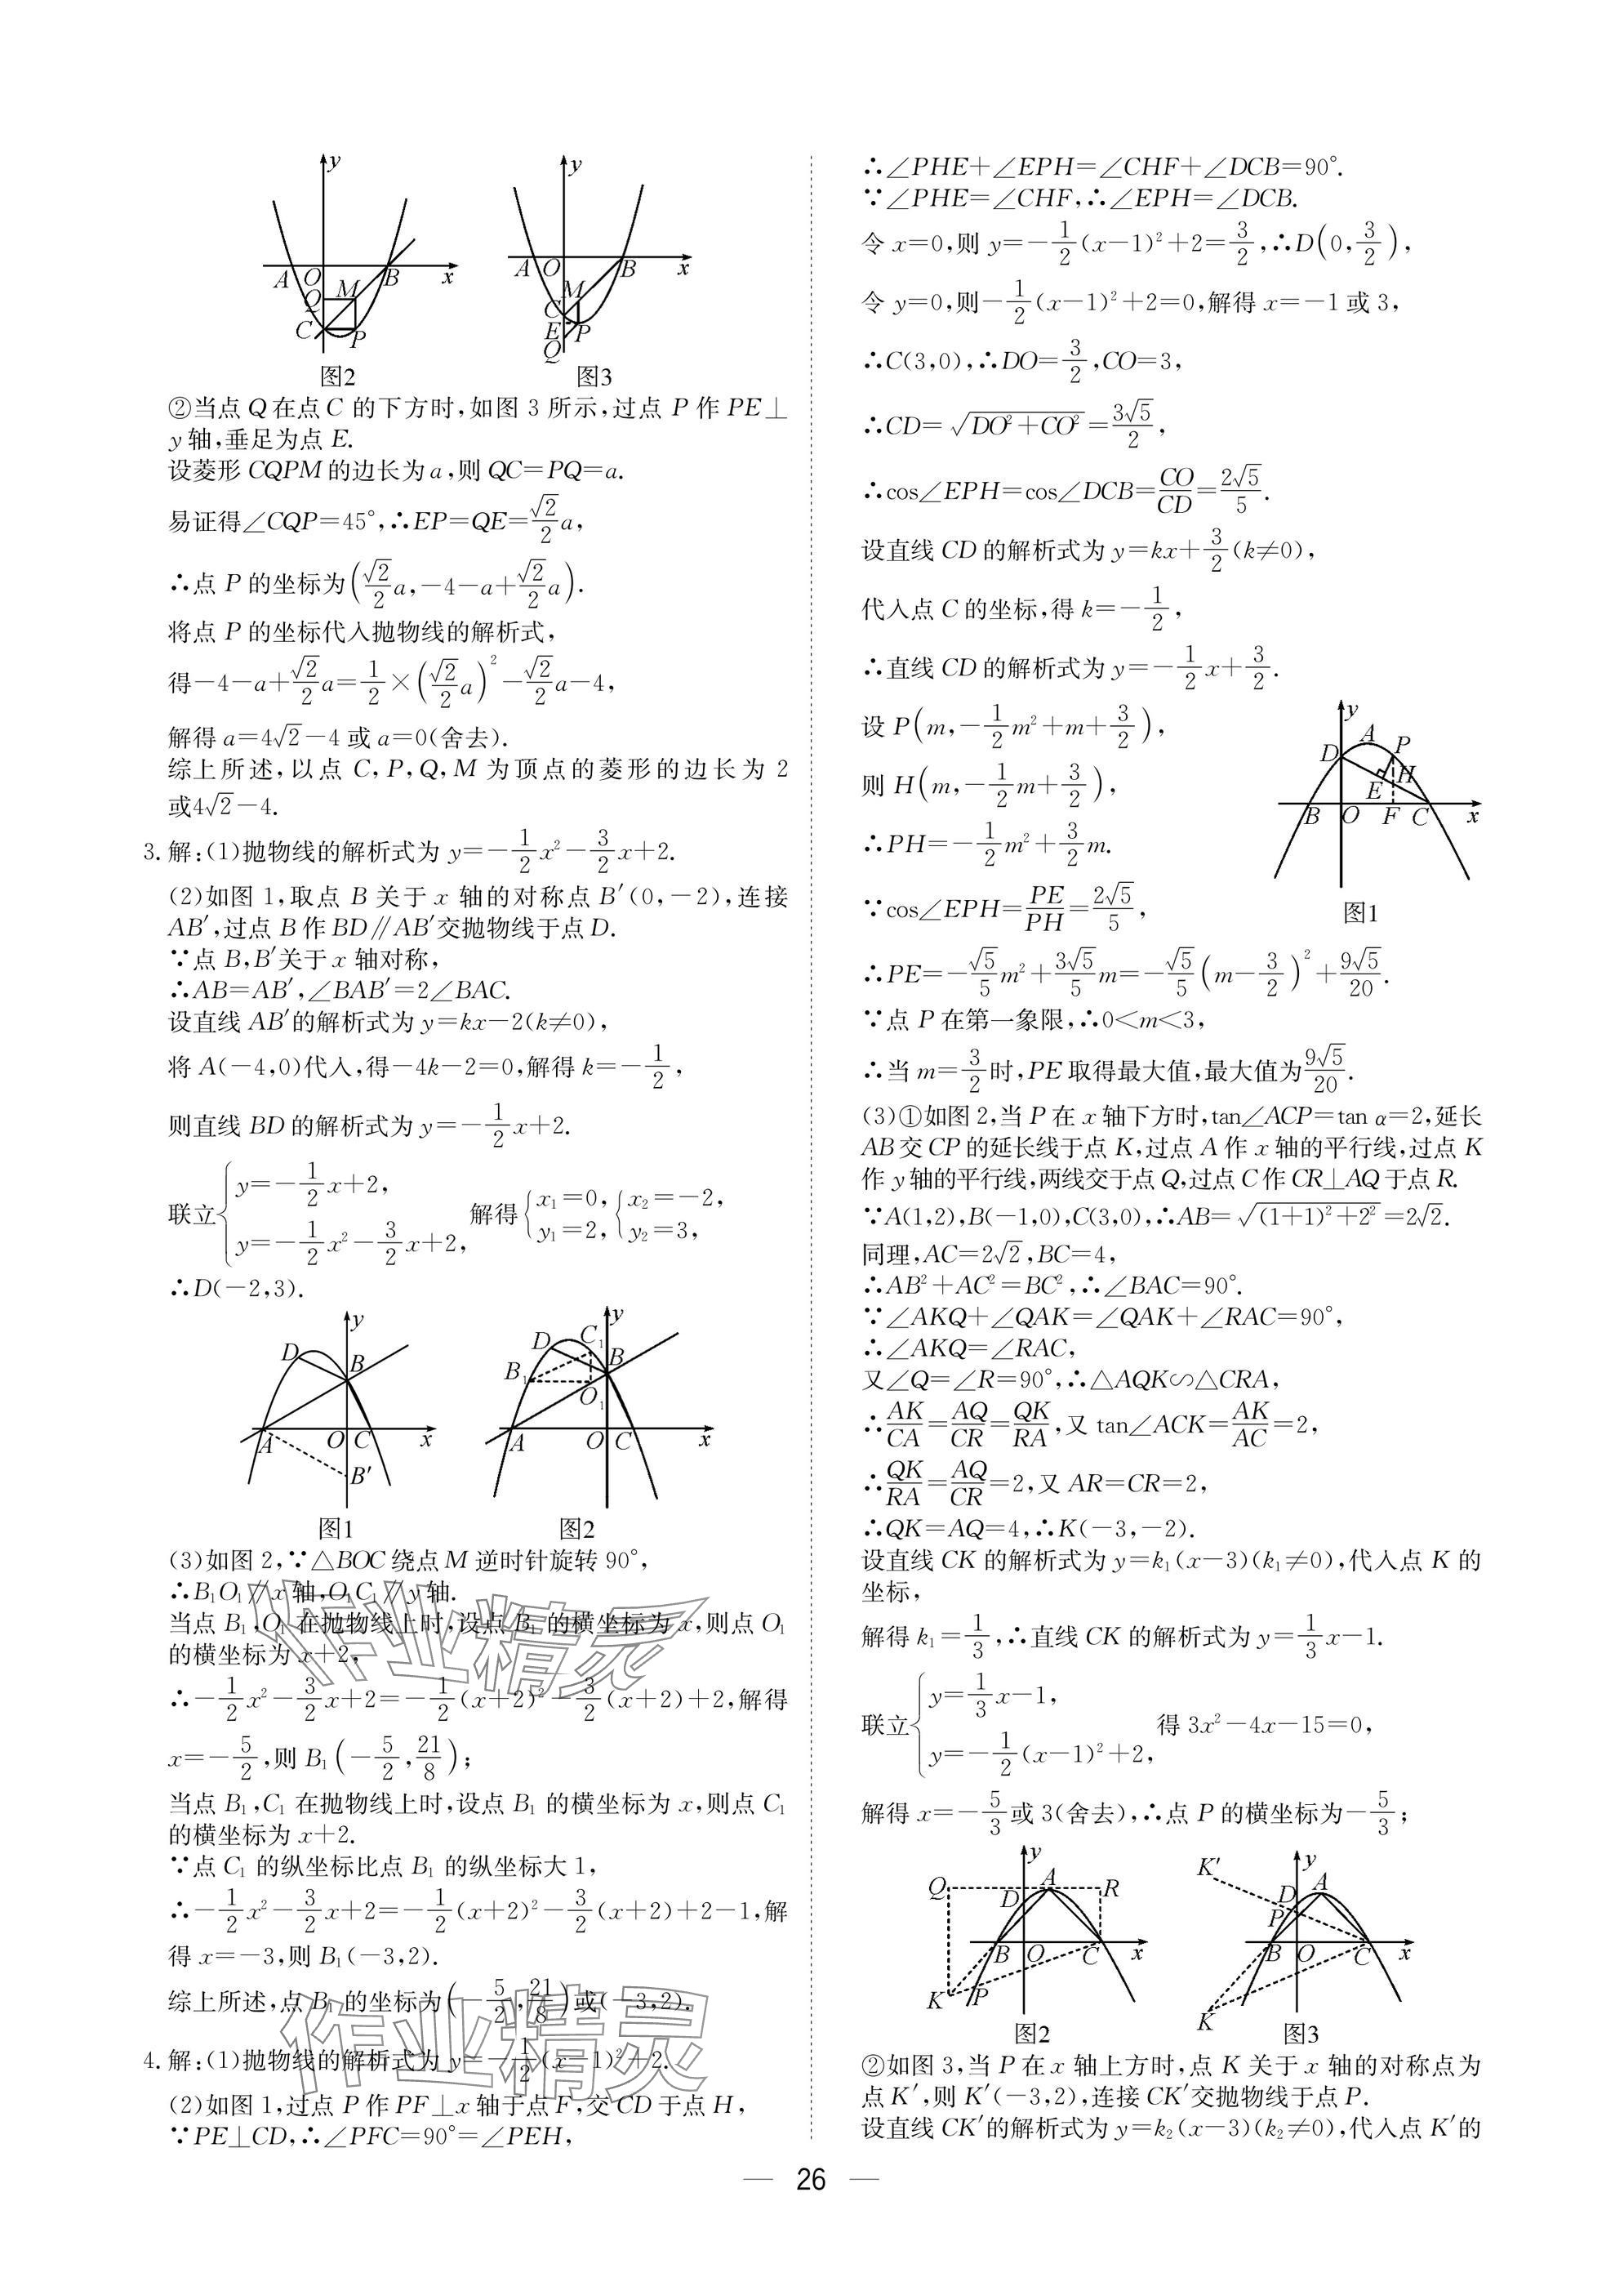 y
A O B x
Q M
C P
图2
y
A O B x
M
C
E P
Q
图3
②当点 Q 在点 C 的下方时,如图 3 所示,过点 P 作 PE⊥
y 轴,垂足为点 E.
设菱形 CQPM 的边长为 a,则 QC=PQ=a.
易证得∠CQP=45°,∴EP=QE=√2/2 a,
∴点 P 的坐标为(√2/2 a,-4-a+√2/2 a).
将点 P 的坐标代入抛物线的解析式,
得-4-a+√2/2 a=1/2×(√2/2 a)²-√2/2 a-4,
解得 a=4√2-4 或 a=0(舍去).
综上所述,以点 C,P,Q,M 为顶点的菱形的边长为 2
或4√2-4.
3. 解:(1)抛物线的解析式为 y=-1/2 x²-3/2 x+2.
(2)如图 1,取点 B 关于 x 轴的对称点 B′(0,-2),连接
AB′,过点 B 作 BD∥AB′交抛物线于点 D.
∵点 B,B′关于 x 轴对称,
∴AB=AB′,∠BAB′=2∠BAC.
设直线 AB′的解析式为 y=kx-2(k≠0),
将 A(-4,0)代入,得-4k-2=0,解得 k=-1/2,
则直线 BD 的解析式为 y=-1/2 x+2.
联立{y=-1/2 x+2, y=-1/2 x²-3/2 x+2, 解得{x₁=0, y₁=2, {x₂=-2, y₂=3,
∴D(-2,3).
y
D B
A O C x
B′
图1
y
D C₁
B₁ B
O₁
A O C x
图2
(3)如图 2,∵△BOC 绕点 M 逆时针旋转 90°,
∴B₁O₁∥x 轴,O₁C₁∥y 轴.
当点 B₁,O₁ 在抛物线上时,设点 B₁ 的横坐标为 x,则点 O₁
的横坐标为 x+2,
∴-1/2 x²-3/2 x+2=-1/2(x+2)²-3/2(x+2)+2,解得
x=-5/2,则 B₁(-5/2,21/8);
当点 B₁,C₁ 在抛物线上时,设点 B₁ 的横坐标为 x,则点 C₁
的横坐标为 x+2.
∵点 C₁ 的纵坐标比点 B₁ 的纵坐标大 1,
∴-1/2 x²-3/2 x+2=-1/2(x+2)²-3/2(x+2)+2-1,解
得 x=-3,则 B₁(-3,2).
综上所述,点 B₁ 的坐标为(-5/2,21/8)或(-3,2).
4. 解:(1)抛物线的解析式为 y=-1/2(x-1)²+2.
(2)如图 1,过点 P 作 PF⊥x 轴于点 F,交 CD 于点 H,
∵PE⊥CD,∴∠PFC=90°=∠PEH,
作业精灵
作业精灵
∴∠PHE+∠EPH=∠CHF+∠DCB=90°.
∵∠PHE=∠CHF,∴∠EPH=∠DCB.
令 x=0,则 y=-1/2(x-1)²+2=3/2,∴D(0,3/2),
令 y=0,则-1/2(x-1)²+2=0,解得 x=-1 或 3,
∴C(3,0),∴DO=3/2,CO=3,
∴CD=√(DO²+CO²)=3√5/2,
∴cos∠EPH=cos∠DCB=CO/CD=2√5/5.
设直线 CD 的解析式为 y=kx+3/2(k≠0),
代入点 C 的坐标,得 k=-1/2,
∴直线 CD 的解析式为 y=-1/2 x+3/2.
设 P(m,-1/2 m²+m+3/2),
则 H(m,-1/2 m+3/2),
∴PH=-1/2 m²+3/2 m.
∵cos∠EPH=PE/PH=2√5/5,
y
A P
D
H
E
B O F C x
图1
∴PE=-√5/5 m²+3√5/5 m=-√5/5(m-3/2)²+9√5/20.
∵点 P 在第一象限,∴0<m<3,
∴当 m=3/2时,PE 取得最大值,最大值为9√5/20.
(3)①如图 2,当 P 在 x 轴下方时,tan∠ACP=tan α=2,延长
AB 交 CP 的延长线于点 K,过点 A 作 x 轴的平行线,过点 K
作 y 轴的平行线,两线交于点 Q,过点 C 作 CR⊥AQ 于点 R.
∵A(1,2),B(-1,0),C(3,0),∴AB=√((1+1)²+2²)=2√2.
同理,AC=2√2,BC=4,
∴AB²+AC²=BC²,∴∠BAC=90°.
∵∠AKQ+∠QAK=∠QAK+∠RAC=90°,
∴∠AKQ=∠RAC,
又∠Q=∠R=90°,∴△AQK∽△CRA,
∴AK/CA=AQ/CR=QK/RA,又 tan∠ACK=AK/AC=2,
∴QK/RA=AQ/CR=2,又 AR=CR=2,
∴QK=AQ=4,∴K(-3,-2).
设直线 CK 的解析式为 y=k₁(x-3)(k₁≠0),代入点 K 的
坐标,
解得 k₁=1/3,∴直线 CK 的解析式为 y=1/3 x-1.
联立{y=1/3 x-1, y=-1/2(x-1)²+2, 得 3x²-4x-15=0,
解得 x=-5/3或 3(舍去),∴点 P 的横坐标为-5/3;
y
Q D A R
B O C x
K P
图2
K′ y
D A
P
B O C x
K
图3
②如图 3,当 P 在 x 轴上方时,点 K 关于 x 轴的对称点为
点 K′,则 K′(-3,2),连接 CK′交抛物线于点 P.
设直线 CK′的解析式为 y=k₂(x-3)(k₂≠0),代入点 K′的
— 26 —